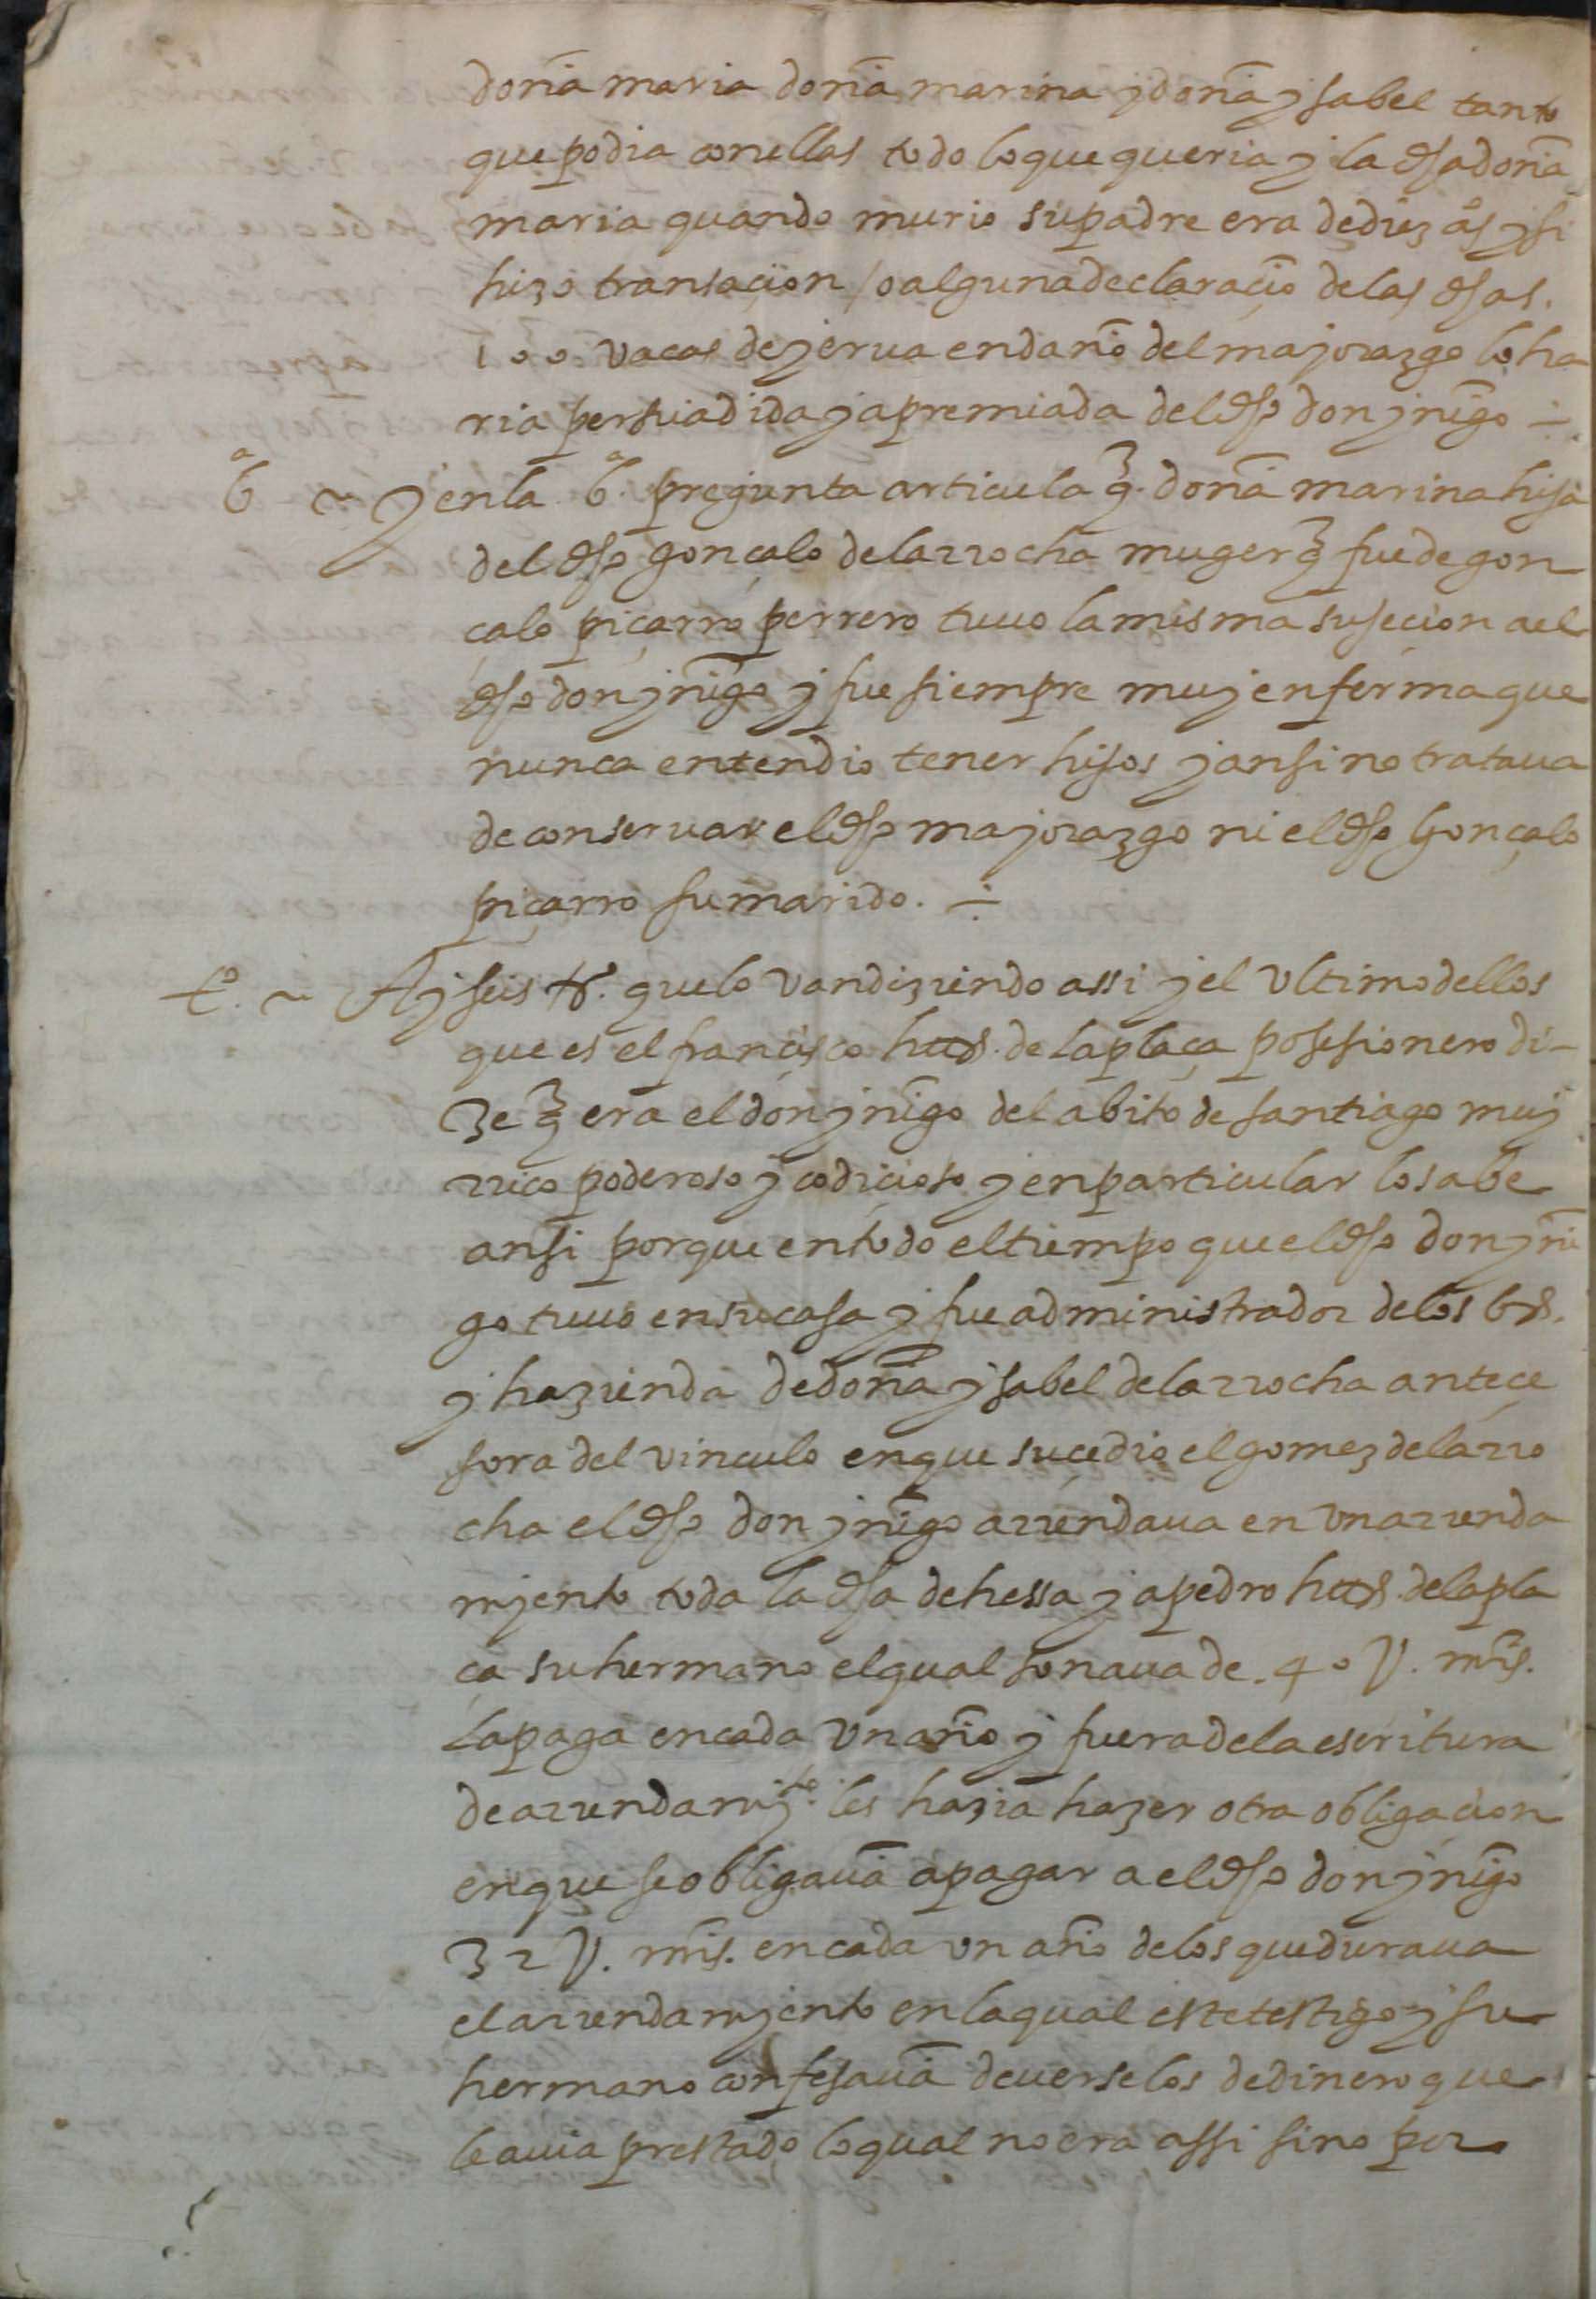 doña maria doña marina y doña ysabel tanto
que podia con ellas todo lo que queria y la dha doña
maria quando murio su padre era de diez as y si
hizo transaçion / o alguna declaraçio de las dhas.
100 vacas de yerua en daño del mayorazgo lo ha
ria persuadida y apremiada del dho don ynigo ÷
6ª ~ y en la 6ª. pregunta articula q. doña marina hija
del dho gonçalo de la rrocha muger q fue de gon
çalo piçarro perrero tuuo la misma sujeçion a el
dho don ynigo y fue siempre muy enferma que
nunca entendio tener hijos y ansi no trataua
de conseruar el dho mayorazgo ni el dho Gonçalo
piçarro su marido. ÷
tº. ~ Ay seis tos. que lo van diziendo assi y el vltimo dellos
que es el françisco hrrs. de la plaça posesionero di-
ze q era el don ynigo del abito de santiago muy
rrico poderoso y codiçioso y en particular lo sabe
ansi porque en todo el tiempo que el dho don yni
go tuuo en su casa y fue administrador de los bs.
y hazienda de doña ysabel de la rrocha anteçe
sora del vinculo en que suçedio el gomez de la rro
cha el dho don ynigo arrendaua en vn arrenda
myento toda la dha dehessa y a pedro hrrs. de la pla
ça su hermano el qual sonaua de. 40 U. mrs.
la paga en cada vn año y fuera de la escritura
de arrendamyto. les hazia hazer otra obligaçion
en que se obligauā a pagar a el dho don ynigo
32 U. mrs. en cada vn año de los que duraua
el arrendamyento en la qual este testigo y su
hermano confesauā deuerselos de dinero que
le auia prestado lo qual no era assi sino por